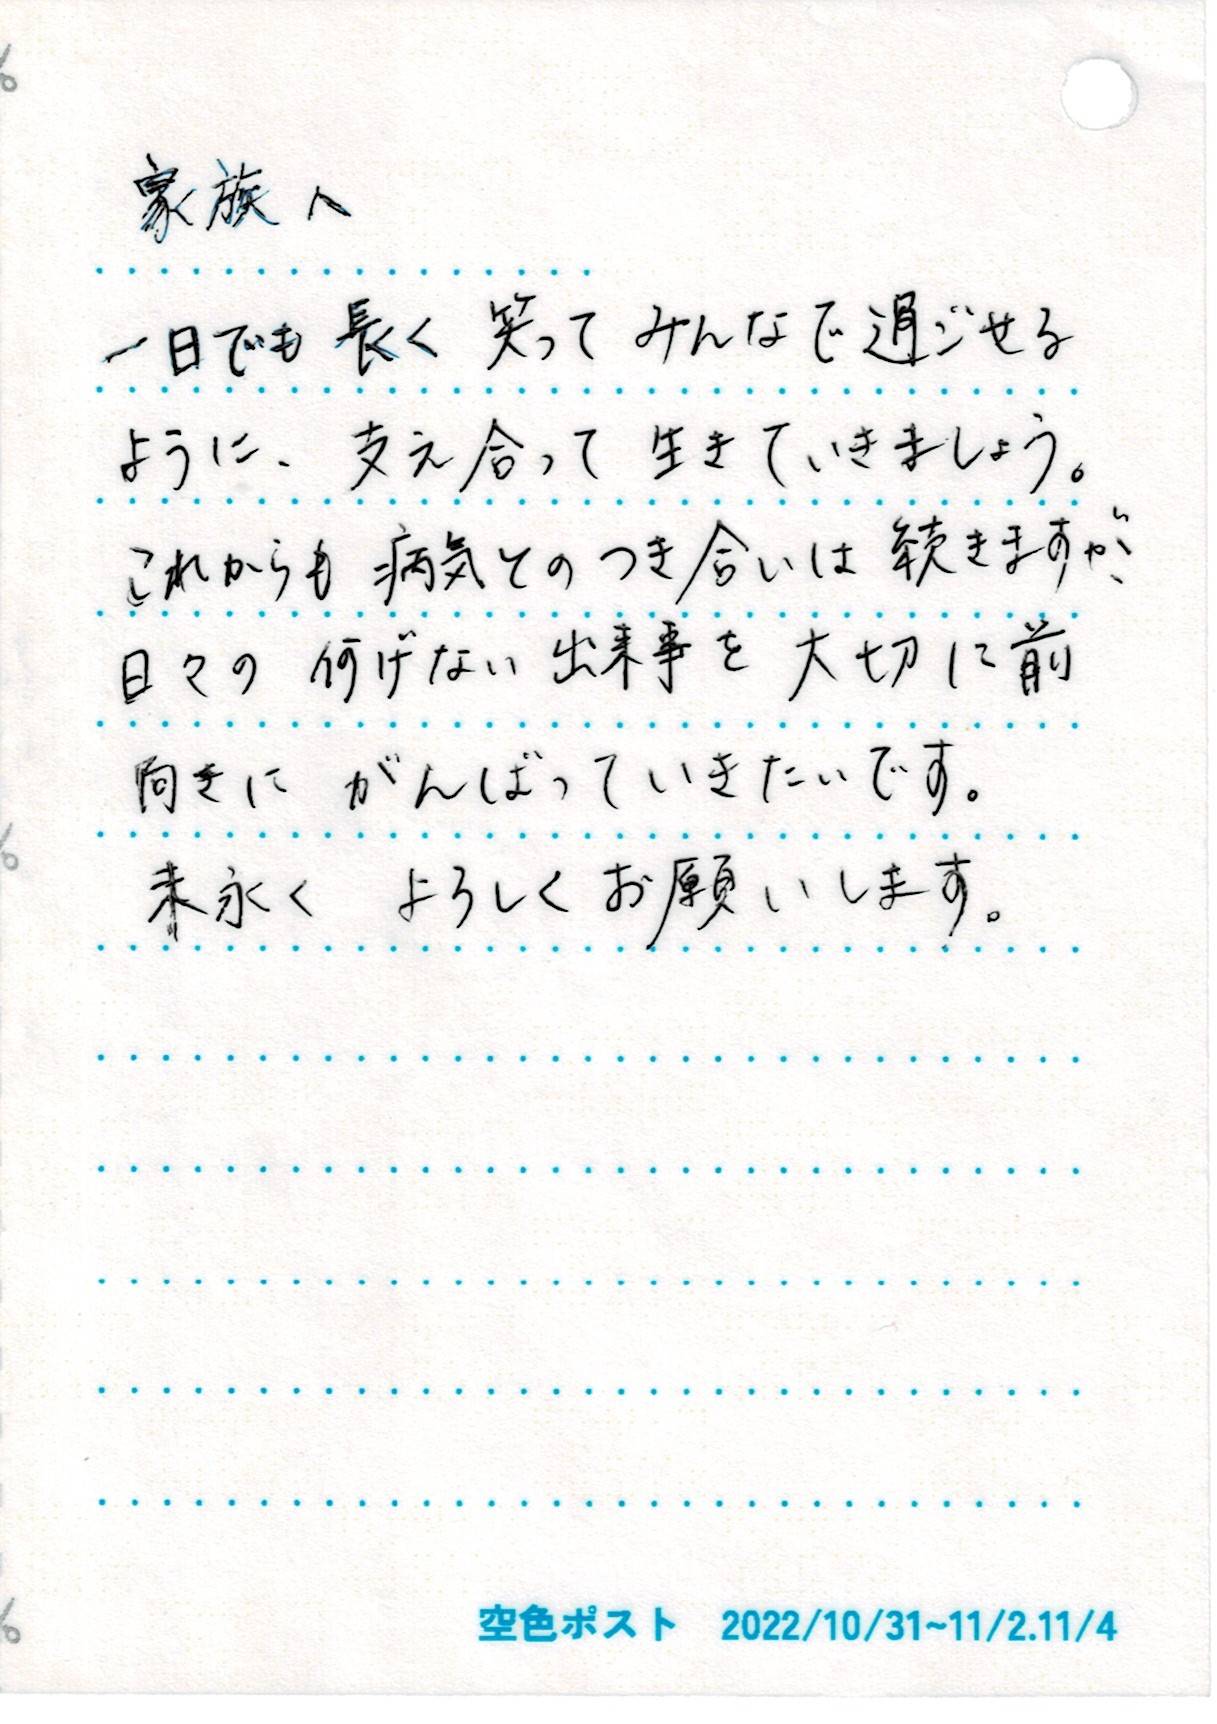 家族へ
一日でも長く笑ってみんなで過ごせる
ように、支え合って生きていきましょう。
これからも病気とのつき合いは続きますが、
日々の何げない出来事を大切に前
向きにがんばっていきたいです。
末永くよろしくお願いします。
空色ポスト 2022/10/31~11/2.11/4